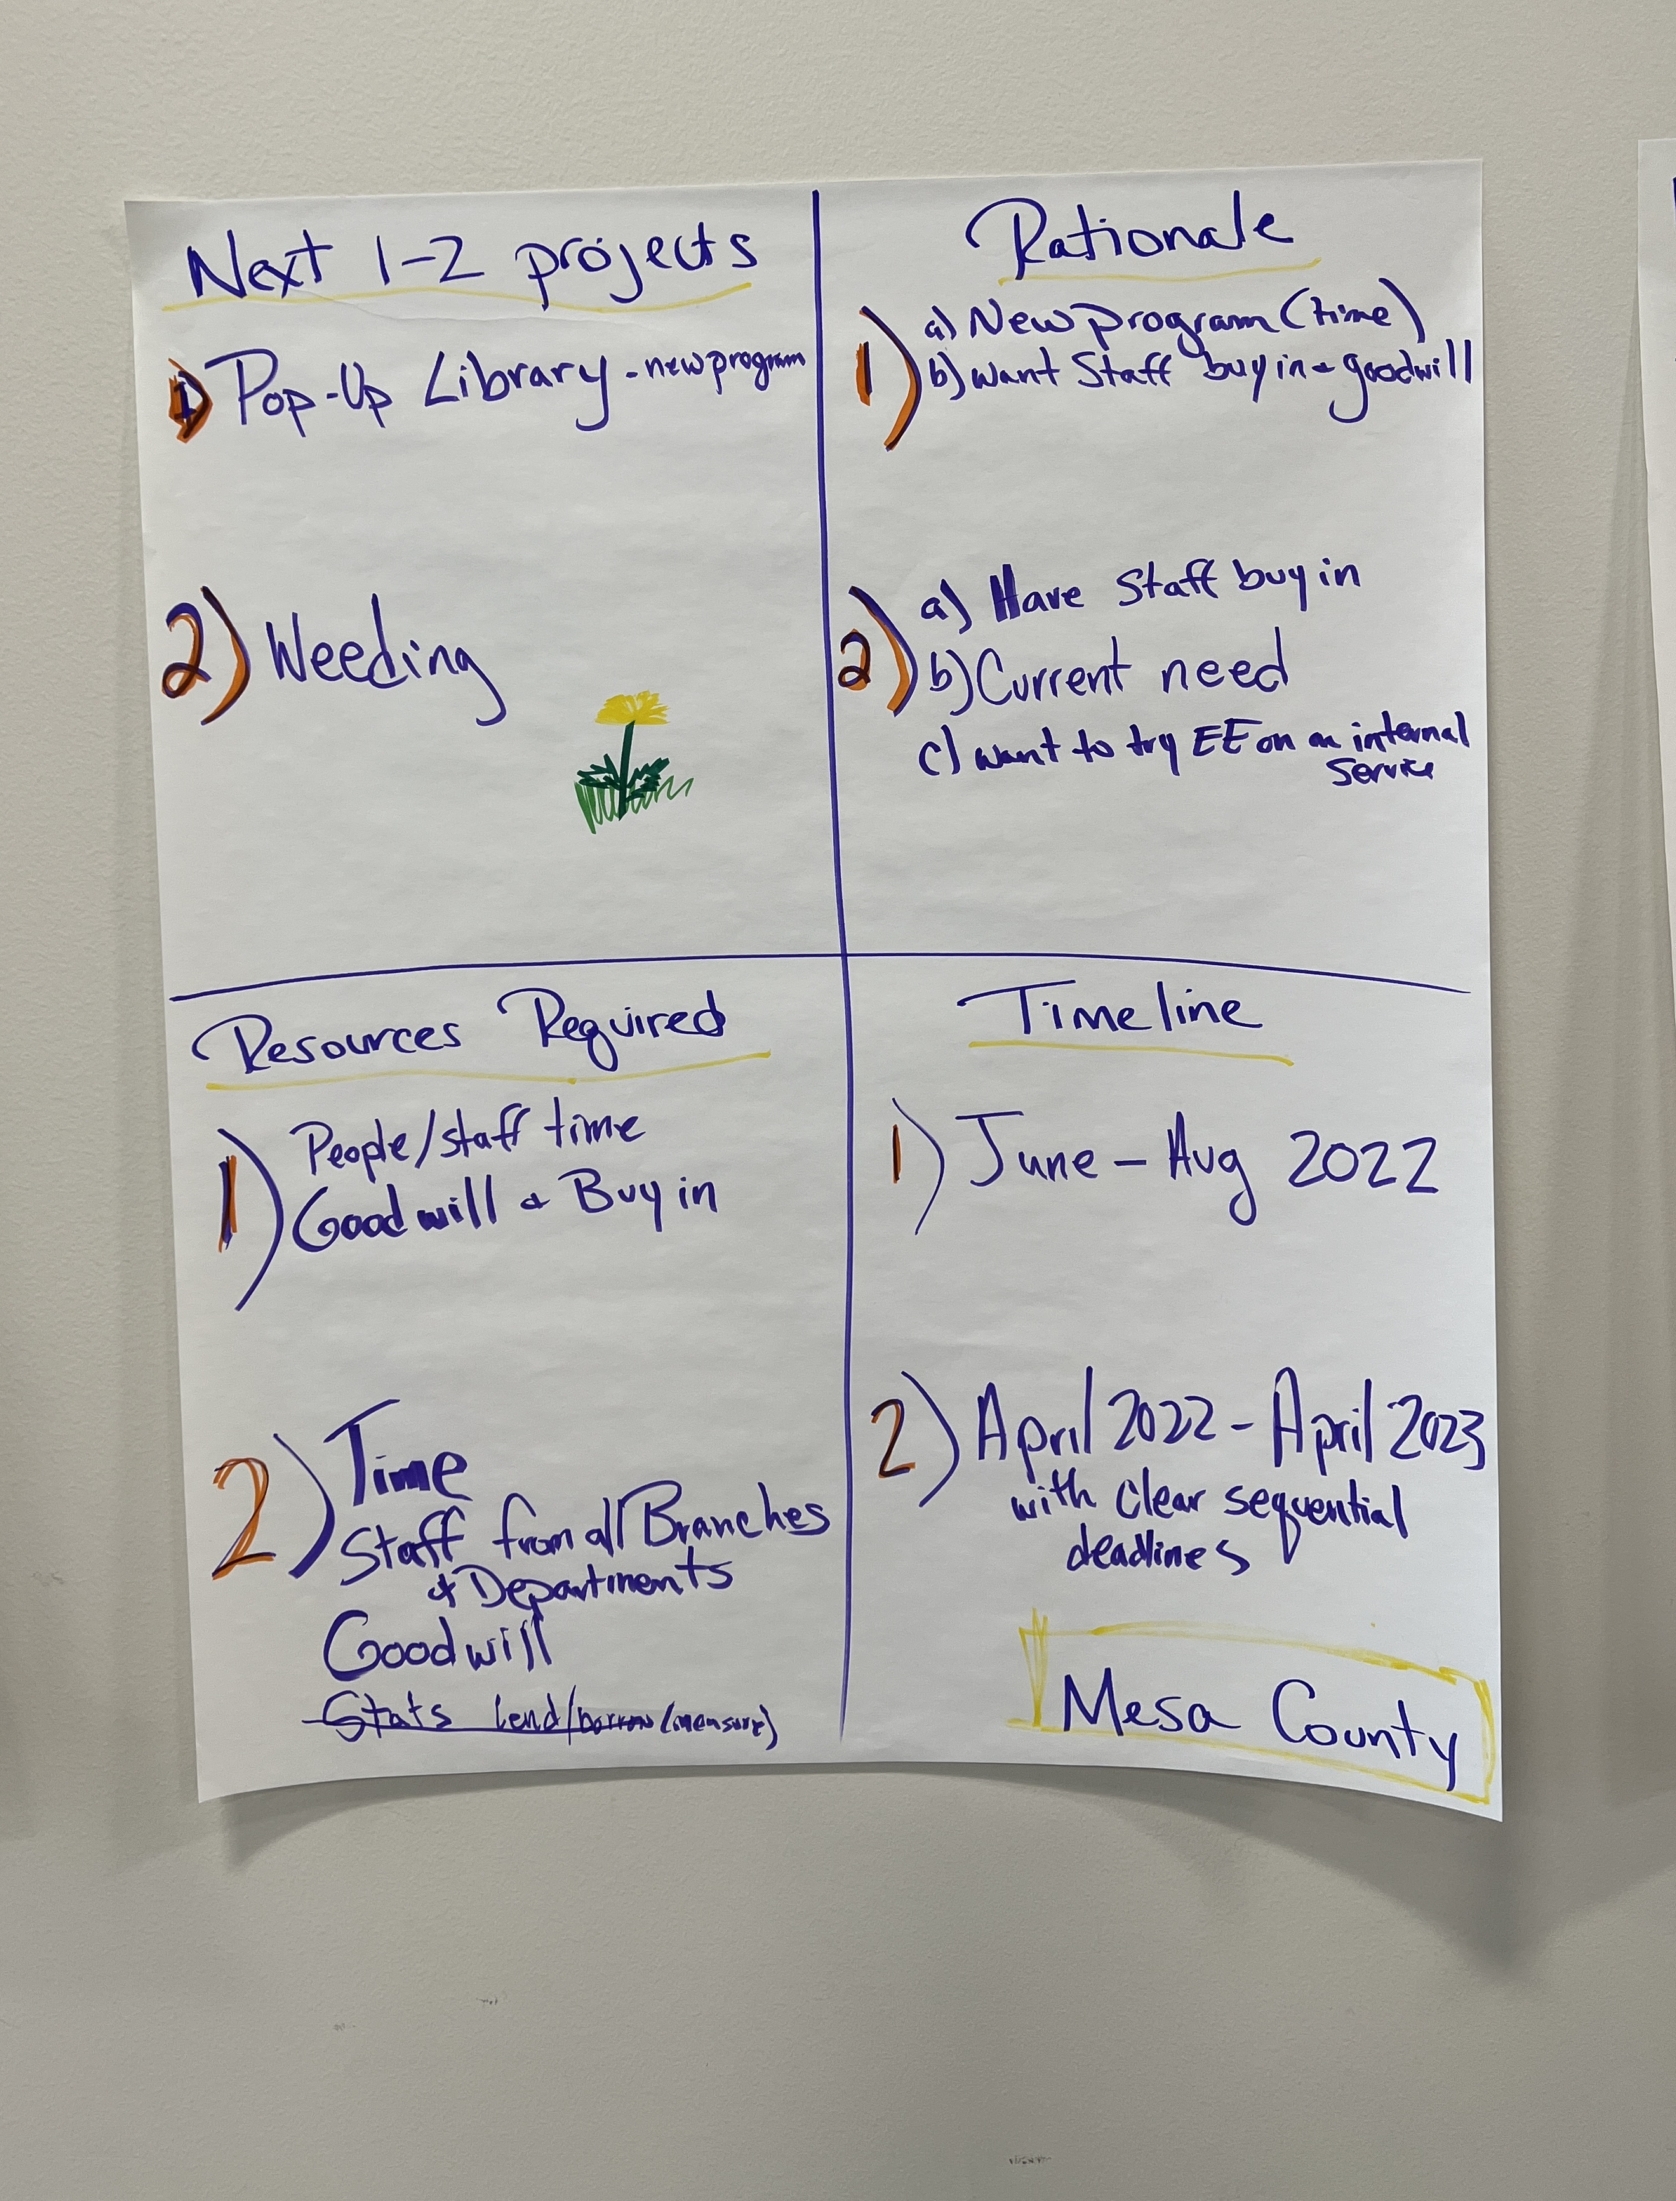 Next 1-2 projects
1) Pop-Up Library - new program
2) Weeding
Rationale
1) a) New program (time)
b) want Staff buy in & goodwill
2) a) Have Staff buy in
b) Current need
c) want to try EE on an internal
Service
Resources Required
1) People/staff time
Goodwill & Buy in
2) Time
Staff from all Branches
& Departments
Goodwill
Stats lend/borrow (measure)
Timeline
1) June - Aug 2022
2) April 2022 - April 2023
with clear sequential
deadlines
Mesa County